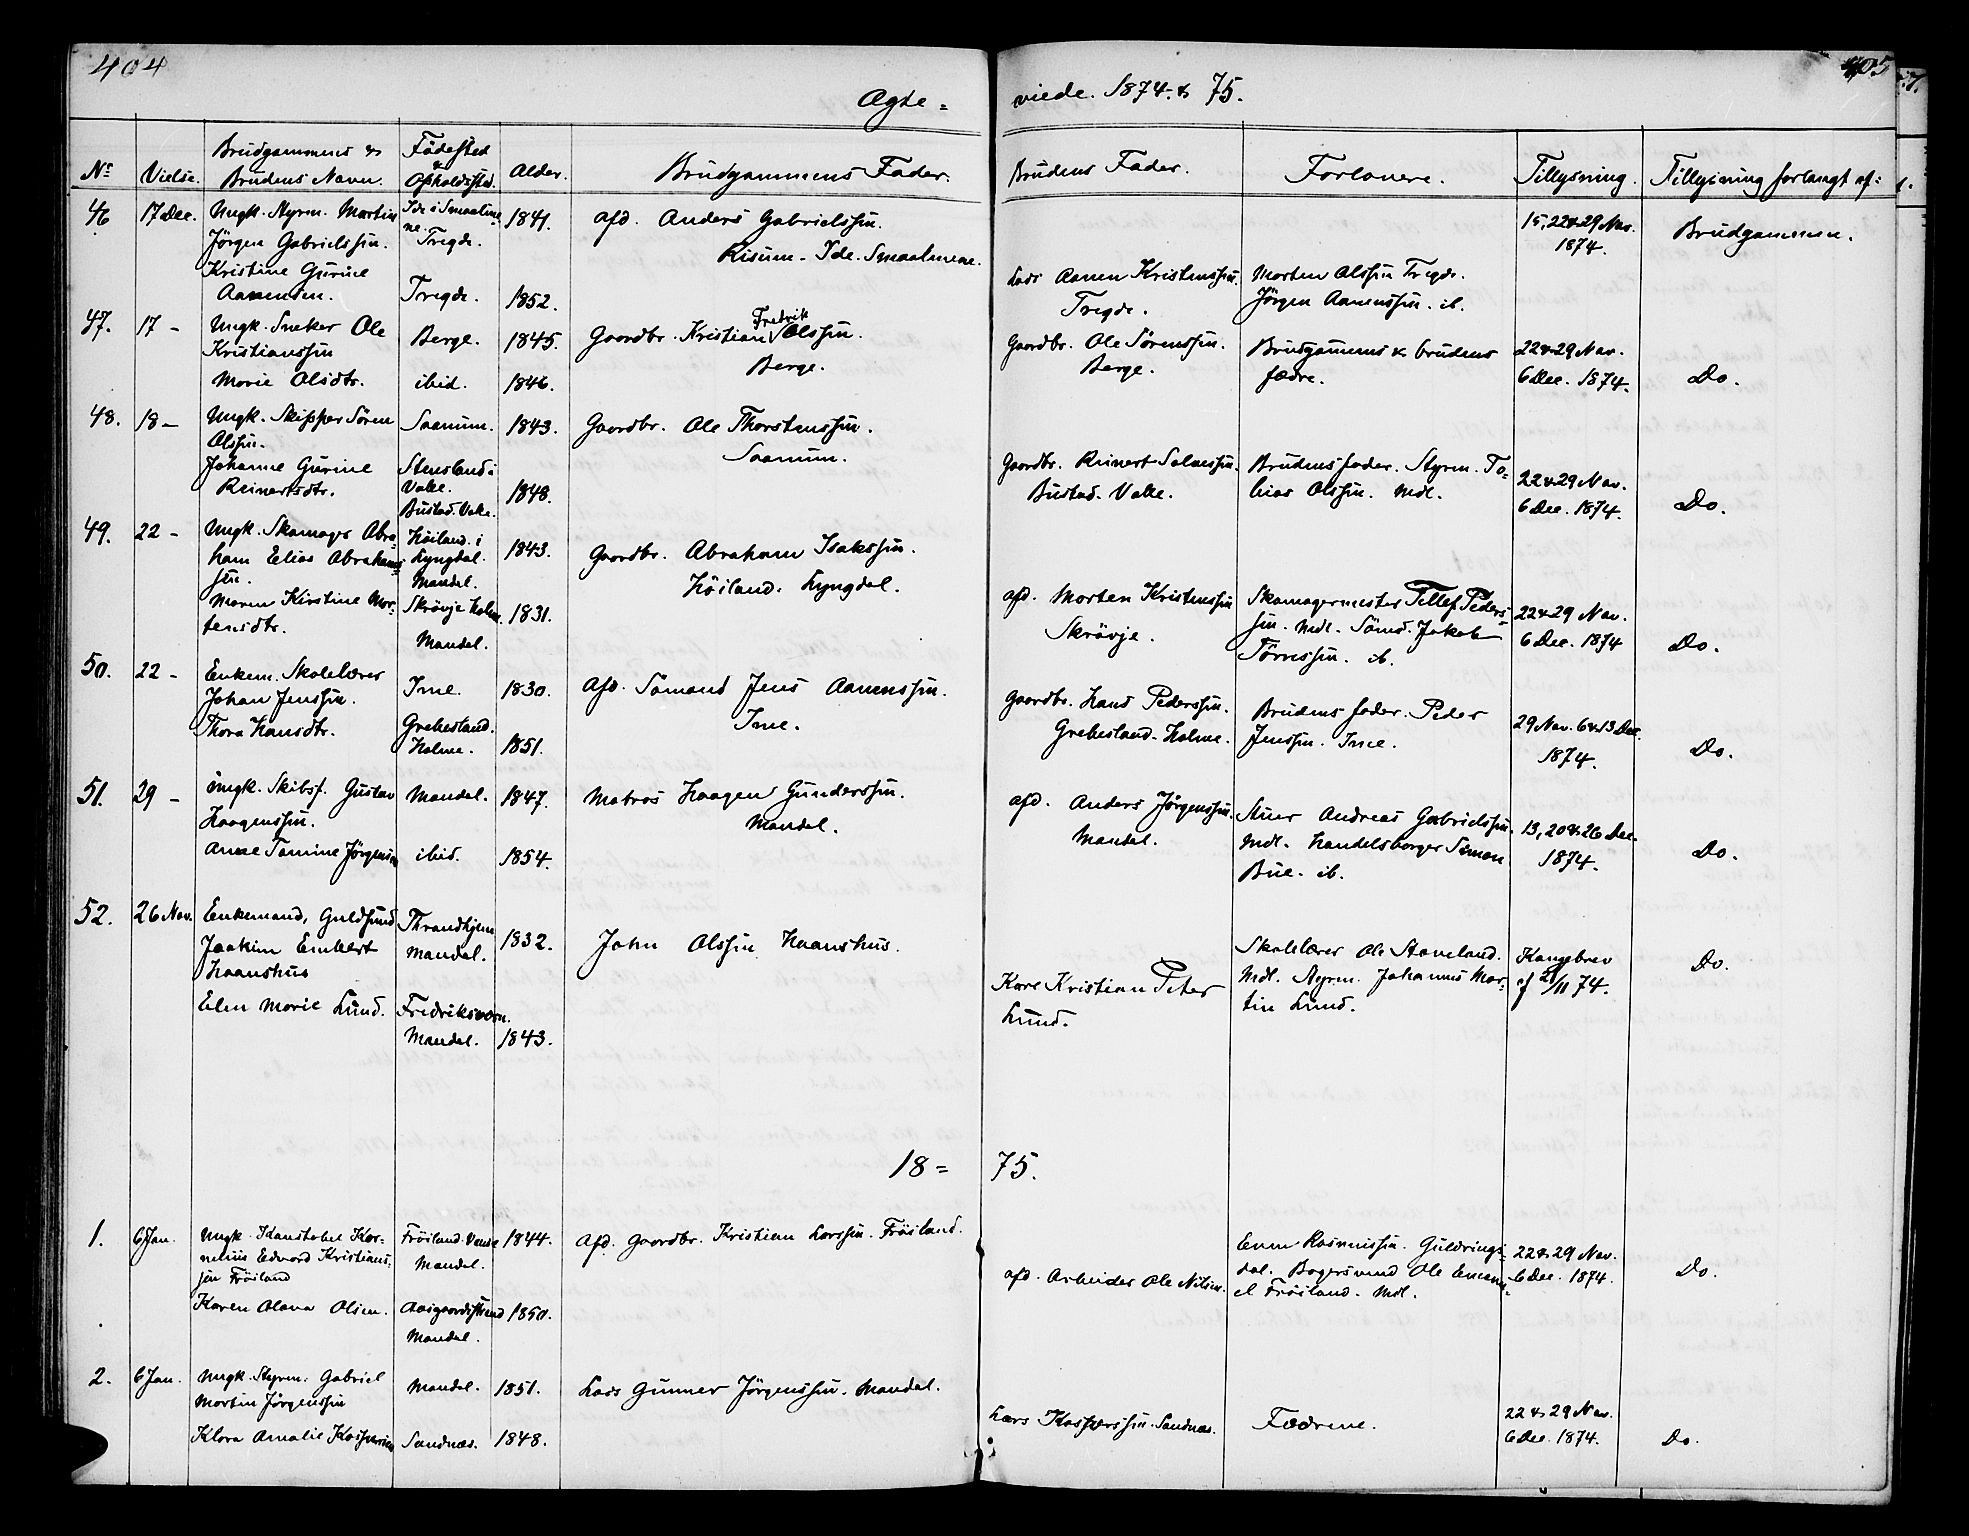 404
405
Ægte = viede. 1874 & 75.
No
Vielse.
Brudgommens &
Brudens Navn.
Födested
&
Opholdssted.
Alder.
Brudgommens Fader.
Brudens Fader.
Forlovere.
Tillysning.
Tillysning forlangt af:
46
17 Dec.
Ungk. Styrm. Martin
Jörgen Gabrielssen.
Kristine Gurine
Aanensen.
Ide i Smaalene
ne
Tregde.
Tregde.
1841.
1852.
afd. Anders Gabrielssen.
Risum - Ide. Smaalenene.
Lods Aanen Kristenssen.
Tregde.
Morten Olssen Tregde.
Jörgen Aanenssen. ib.
15, 22 & 29 Nov.
1874.
Brudgommen.
47.
17 -
Ungk. Sneker Ole
Kristianssen
Marie Olsdtr.
Berge.
ibid.
1845.
1846.
Gaardbr. Kristian Fredrik Olssen.
Berge.
Gaardbr. Ole Sörenssen.
Berge.
Brudgommens & brudens
fædre.
22 & 29 Nov.
6 Dec. 1874.
Do.
48.
18 -
Ungk. Skipper Sören
Olssen.
Johanne Gurine
Reinertsdtr.
Saanum.
Stensland i
Valle.
Bustad. Valle.
1843.
1848.
Gaardbr. Ole Thorstenssen.
Saanum.
Gaardbr. Reinert Salvessen.
Bustad. Valle.
Brudens fader. Styrm. To=
bias Olssen. Mdl.
22 & 29 Nov.
6 Dec. 1874.
Do.
49.
22 -
Ungk. Skomager Abra=
ham Elias Abrahams=
sen.
Maren Kirstine Mor=
tensdtr.
Höiland i
Lyngdal.
Mandal.
Skrövje Holme.
Mandal.
1843.
1831.
Gaardbr. Abraham Isakssen.
Höiland. Lyngdal.
afd. Morten Kristenssen
Skrövje.
Skomagermester Tellef Peders=
sen. Mdl. Sömd. Jakob
Törressen. ib.
22 & 29 Nov.
6 Dec. 1874
Do.
50.
22 -
Enkem. Skolelærer
Johan Jenssen.
Thora Hansdtr.
Ime.
Grebesland.
Holme.
1830.
1851.
Afd. Sömand Jens Aanenssen.
Ime.
Gaardbr. Hans Pederssen.
Grebesland. Holme.
Brudens fader. Peder
Jenssen. Ime.
29 Nov. 6 & 13 Dec.
1874.
Do.
51.
29 -
Ungk. Skibsf. Gustav
Haagenssen.
Anne Tomine Jörgensen
Mandal.
ibid.
1847.
1854.
Matros Haagen Gunderssen.
Mandal.
afd. Anders Jörgenssen.
Mandal.
Stuer Andreas Gabrielssen.
Mdl. Handelsborger Simon
Bue. ib.
13, 20 & 26 Dec.
1874.
Do.
52.
26 Nov.
Enkemand, Guldsmed
Joakim Embert
Haanshus
Elen Marie Lund.
Throndhjem
Mandal.
Fredriksværn.
Mandal.
1832.
1843.
John Olssen Haanshus.
Kare Kristian Peter
Lund.
Skolelærer Ole Staveland.
Mdl. Styrm. Johannes Mar=
tin Lund.
Kongebrev
af 21/11 74.
Do.
18 = 75.
1.
6 Jan.
Ungk. Konstabel Kor=
nelius Edvard Kristians=
sen Fröiland
Karen Olava Olsen.
Fröiland. Vanse
Mandal.
Aasgaardstrand
Mandal.
1844.
1850.
Afd. Gaardbr. Kristian Larssen. Fröiland.
afd. Arbeider Ole Nilsen.
Even Rasmussen. Guldrings=
dal. Bogersvend Ole Emanu=
el Fröiland. Mdl.
22 & 29 Nov.
6 Dec. 1874.
Do.
2.
6 Jan.
Ungk. Styrm. Gabriel
Martin Jörgenssen
Klara Amalie Kaspersen
Mandal.
Sandnæs.
1851.
1848.
Lods Gunner Jörgenssen. Mandal.
Lars Kasperssen. Sandnæs.
Fædrene.
22 & 29 Nov.
6 Dec. 1874.
Do.